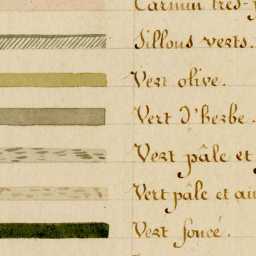 Carmin très-
Sillons verts.
Vert olive.
Vert d'herbe.
Vert pâle et
Vert pâle et au
Vert foncé.